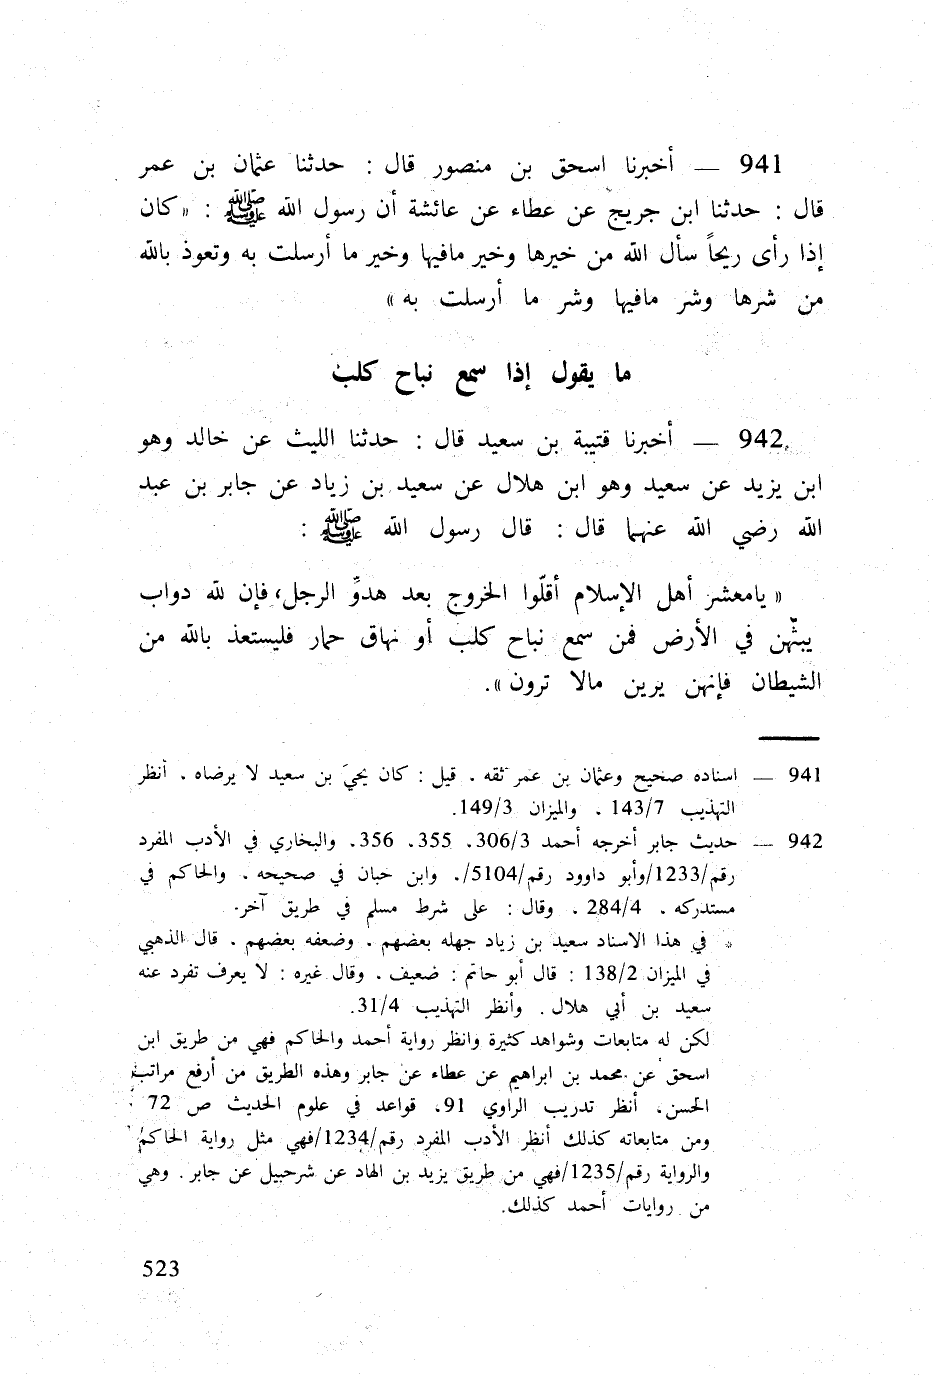 941 — أخبرنا اسحق بن منصور قال : حدثنا عثمان بن عمر
قال : حدثنا ابن جريج عن عطاء عن عائشة أن رسول الله ﷺ : «كان
إذا رأى ريحاً سأل الله من خيرها وخير مافيها وخير ما أرسلت به وتعوذ بالله
من شرها وشر مافيها وشر ما أرسلت به»
ما يقول إذا سمع نباح كلب
942 — أخبرنا قتيبة بن سعيد قال : حدثنا الليث عن خالد وهو
ابن يزيد عن سعيد وهو ابن هلال عن سعيد بن زياد عن جابر بن عبد
الله رضي الله عنهما قال : قال رسول الله ﷺ :
« يامعشر أهل الإسلام أقلّوا الخروج بعد هدوِّ الرجل، فإن لله دواب
يبثّهن في الأرض فمن سمع نباح كلب أو نهاق حمار فليستعذ بالله من
الشيطان فإنهن يرين مالا ترون».
941 — اسناده صحيح وعثمان بن عمر ثقه . قيل : كان يحيَ بن سعيد لا يرضاه . أنظر
التهذيب 143/7 . والميزان 149/3.
942 — حديث جابر أخرجه أحمد 306/3. 355. 356. والبخاري في الأدب المفرد
رقم/1233/وأبو داوود رقم/5104/. وابن حبان في صحيحه . والحاكم في
مستدركه . 284/4 . وقال : على شرط مسلم في طريق آخر.
* في هذا الاسناد سعيد بن زياد جهله بعضهم . وضعفه بعضهم . قال الذهبي
في الميزان 138/2 : قال أبو حاتم : ضعيف . وقال غيره : لا يعرف تفرد عنه
سعيد بن أبي هلال . وأنظر التهذيب 31/4.
لكن له متابعات وشواهد كثيرة وانظر رواية أحمد والحاكم فهي من طريق ابن
اسحق عن محمد بن ابراهيم عن عطاء عن جابر وهذه الطريق من أرفع مراتب
الحسن. أنظر تدريب الراوي 91. قواعد في علوم الحديث ص 72 .
ومن متابعاته كذلك أنظر الأدب المفرد رقم/1234/فهي مثل رواية الحاكم
والرواية رقم/1235/فهي من طريق يزيد بن الهاد عن شرحبيل عن جابر . وهي
من روايات أحمد كذلك.
523